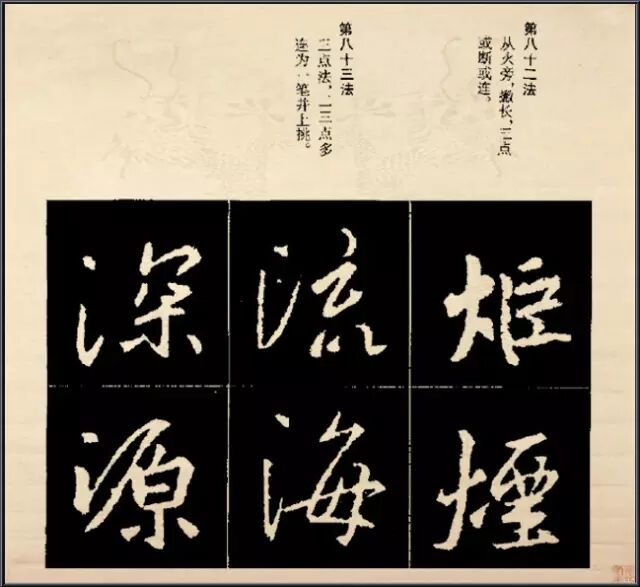 第八十二法
从火旁，撇长，三点
或断或连。
第八十三法
三点法，二三点多
连为一笔并上挑。
炬煙
流海
深源